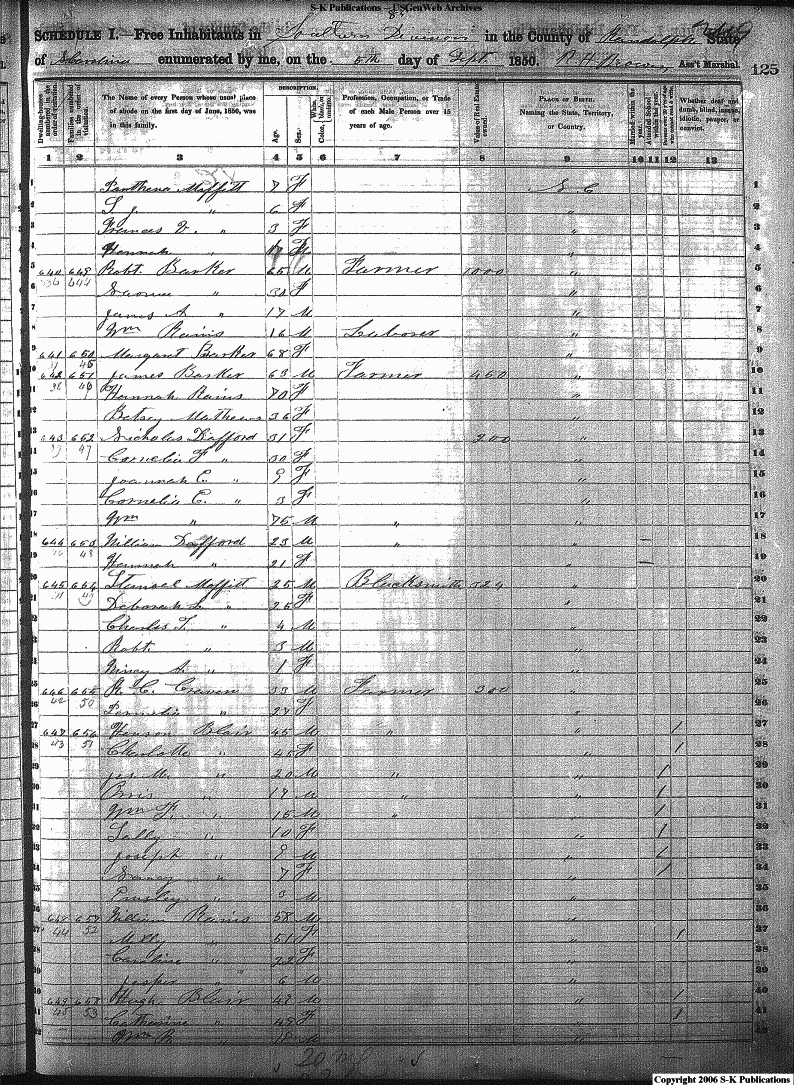 S-K Publications – USGenWeb Archives
SCHEDULE I.—Free Inhabitants in Southern Division in the County of Randolph State
of N Carolina enumerated by me, on the 6th day of Sept. 1850. Ass't Marshal.
125
Dwelling-houses numbered in the order of visitation.
Families numbered in the order of visitation.
The Name of every Person whose usual place of abode on the first day of June, 1850, was in this family.
DESCRIPTION.
Age.
Sex.
White, black, or mulatto.
Color,
Profession, Occupation, or Trade of each Male Person over 15 years of age.
Value of Real Estate owned.
PLACE OF BIRTH. Naming the State, Territory, or Country.
Married within the year.
Attended School within the year.
Whether deaf and dumb, blind, insane, idiotic, pauper, or convict.
1 2 3 4 5 6 7 8 9 10 11 12 13
1 Parthena Moffitt 7 F N. C 1
2 S. J. " 6 F " 2
3 Frances V. " 3 F " 3
4 Hannah " F " 4
5 640 649 Robt. Barker 65 M Farmer 1000 " 5
6 F " 6
7 James A " 17 M " 7
8 Wm Rains 16 M Laborer " 8
9 641 650 Margaret Barker 68 F " 9
10 642 651 James Barker 63 M Farmer 450 " 10
11 Hannah Rains 70 F " 11
12 Betsey Mathews 36 F " 12
13 643 652 Nicholas Dafford 31 F 200 " 13
14 Cornelia F " 30 F " 14
15 Joannah C. " 9 F " 15
16 Cornelia C. " 3 F " 16
17 Wm " 75 M " " 17
18 644 653 William Dafford 23 M " " 18
19 Hannah " 21 F " 19
20 645 654 Moffitt 25 M Blacksmith 324 " 20
21 Deborah L. " 25 F " 21
22 Charles T. " 4 M " 22
23 Robt. " 3 M " 23
24 Nancy A. " 1 F " 24
25 646 655 Craven 33 M Farmer 300 " 25
26 Parmelia " 27 F " 26
27 647 656 Henson Blair 45 M " " 1 27
28 Charlotte " 45 F " 1 28
29 Jas. M. " 20 M " " 1 29
30 " 17 M " " 1 30
31 Wm F. " 15 M " " 1 31
32 Sally " 10 F " 1 32
33 Joseph " 9 M " 1 33
34 Nancy " 7 F " 1 34
35 Emsley " 3 M " 35
36 648 657 William Rains 58 M " 36
37 Milly " 51 F " 1 37
38 Caroline " 22 F " 38
39 Jasper " 6 M " 39
40 649 658 Hugh Blair 49 M " 1 40
41 Catharine " 49 F " 1 41
42 Wm R. " 18 M " 42
Copyright 2006 S-K Publications